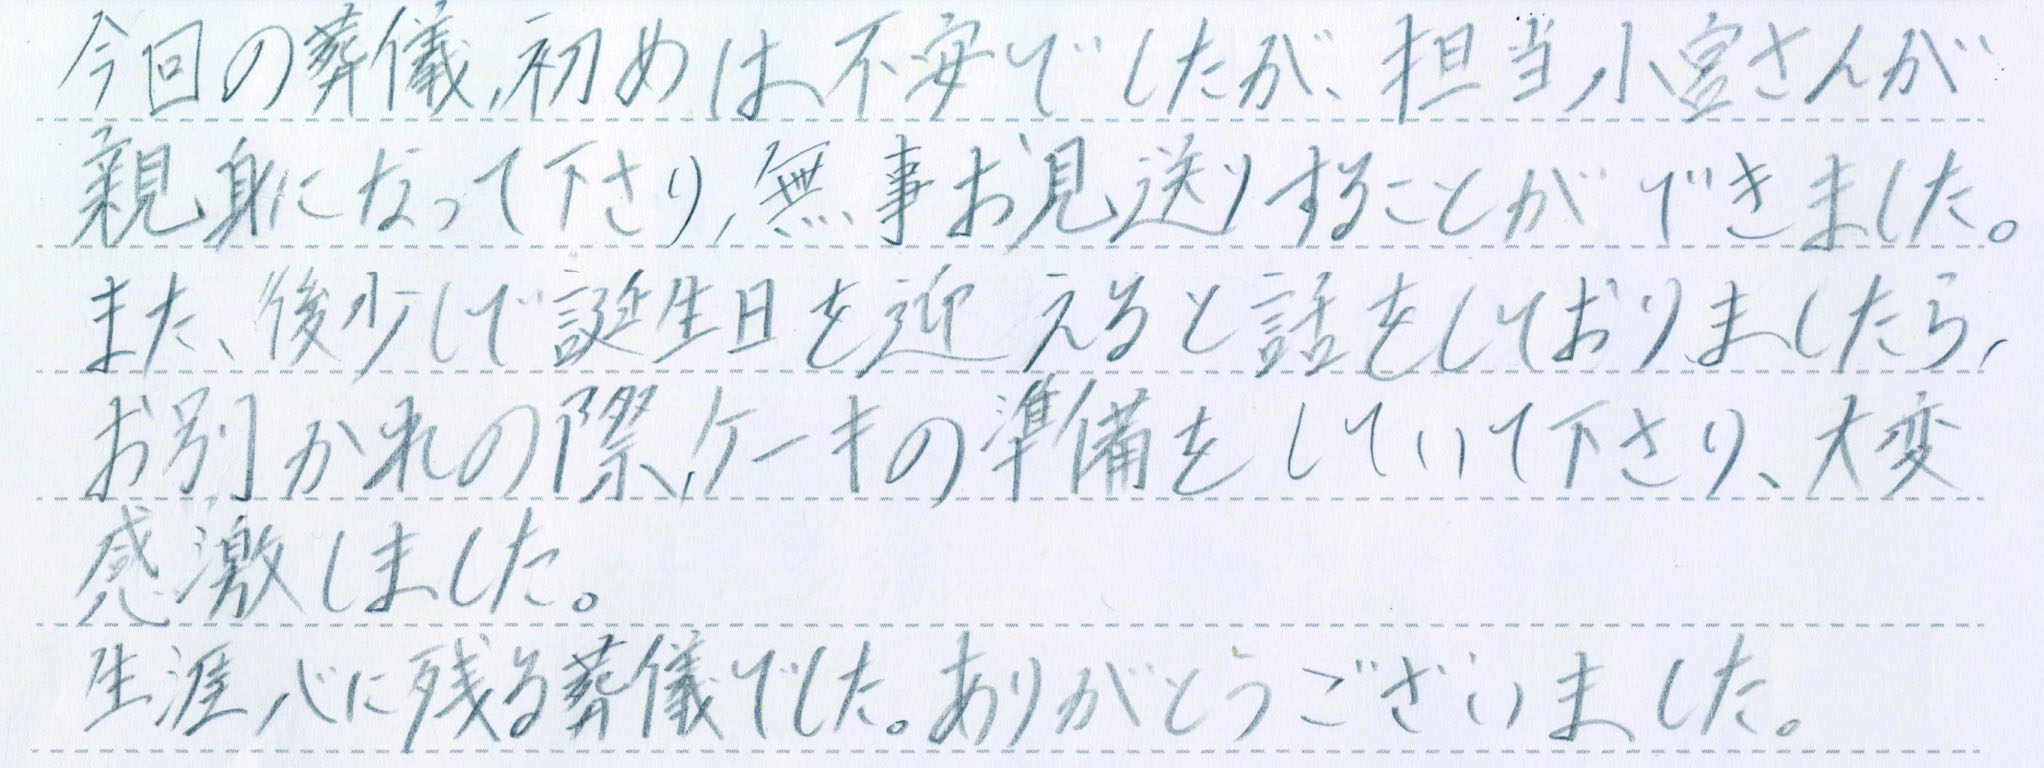 今回の葬儀、初めは不安でしたが、担当小宮さんが
親身になって下さり、無事お見送りすることができました。
また、後少しで誕生日を迎えると話をしておりましたら、
お別かれの際、ケーキの準備をしていて下さり、大変
感激しました。
生涯心に残る葬儀でした。ありがとうございました。